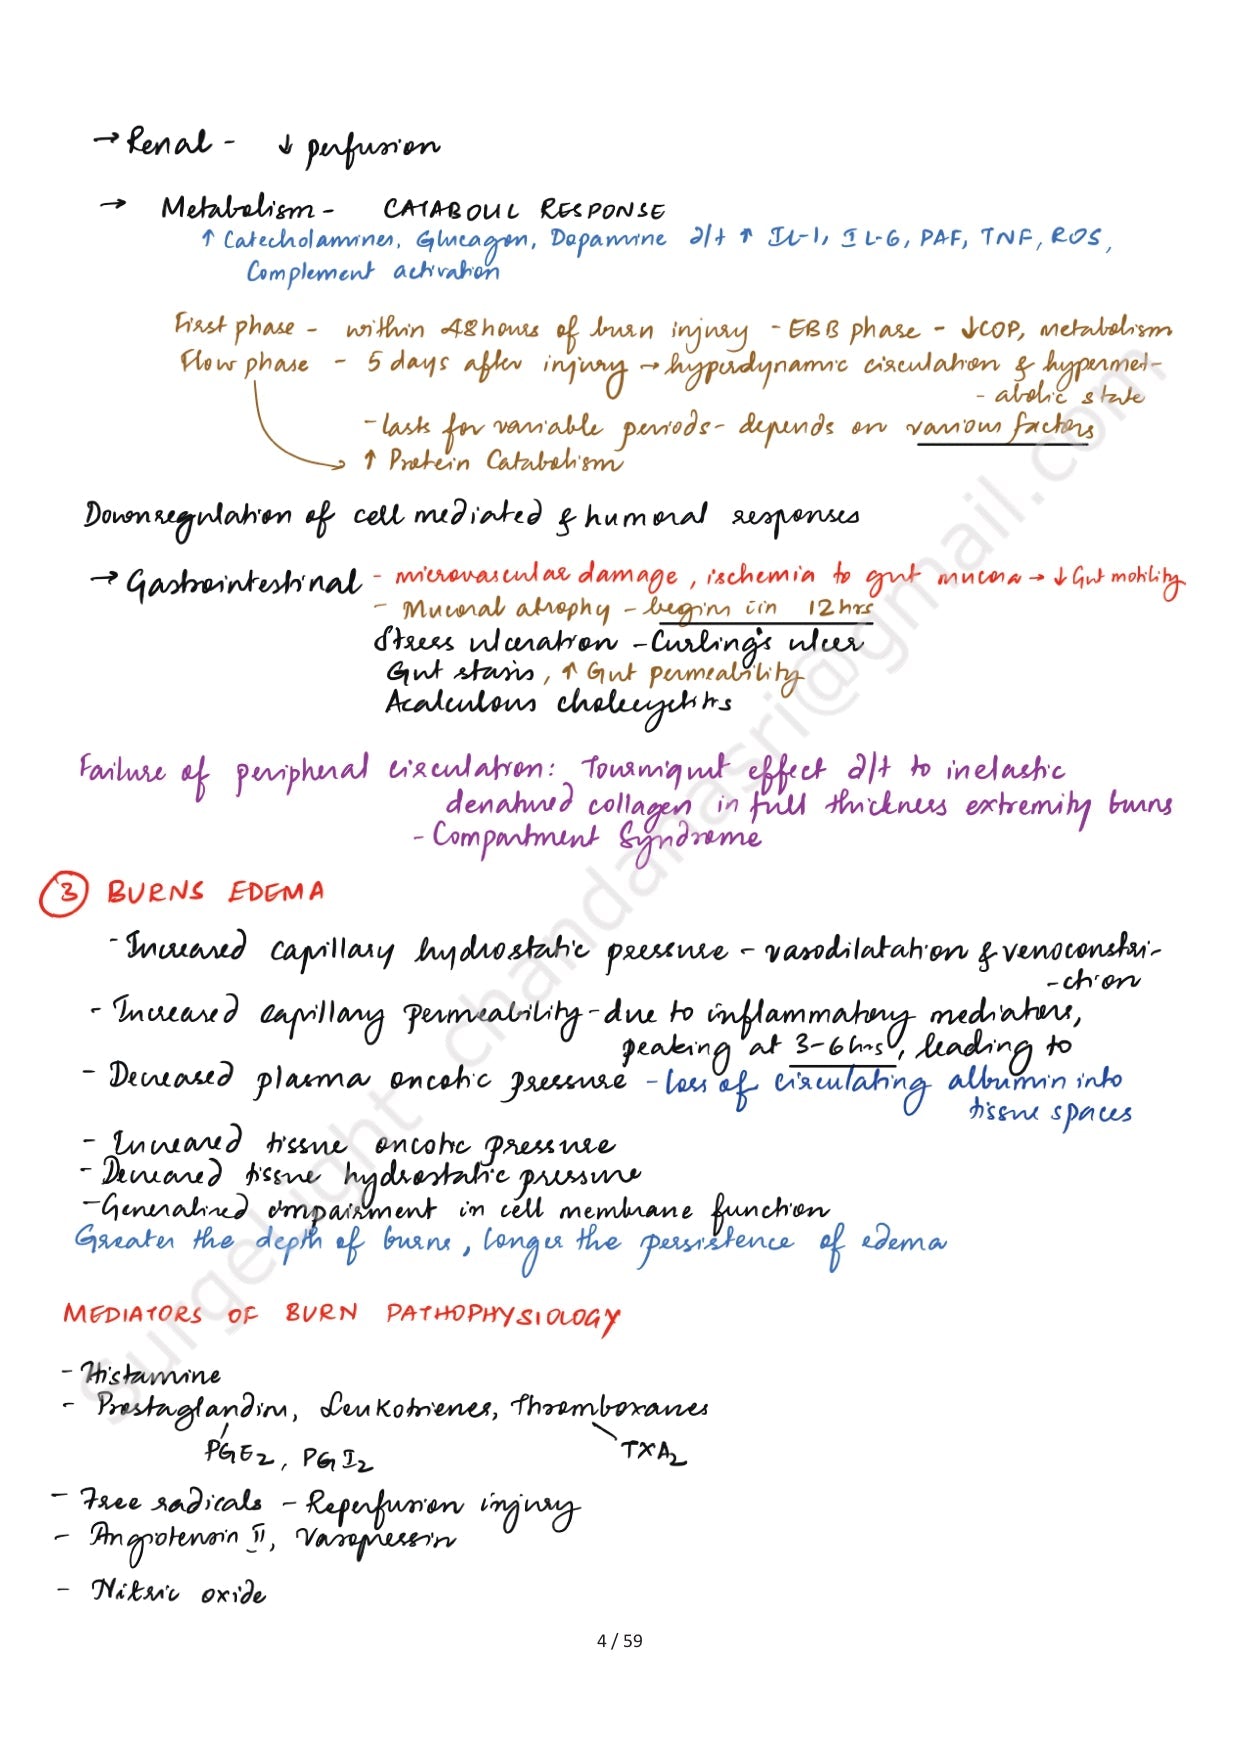 → Renal - ↓ perfusion
→ Metabolism - CATABOLIC RESPONSE
↑ Catecholamines, Glucagon, Dopamine d/t ↑ IL-1, IL-6, PAF, TNF, ROS,
Complement activation
First phase - within 48 hours of burn injury - EBB phase - ↓COP, metabolism
Flow phase - 5 days after injury → hyperdynamic circulation & hypermet-
- abolic state
- lasts for variable periods - depends on various factors
↑ Protein Catabolism
Downregulation of cell mediated & humoral responses
→ Gastrointestinal - microvascular damage, ischemia to gut mucosa → ↓ Gut motility
- Mucosal atrophy - begins in 12 hrs
Stress ulceration - Curling's ulcer
Gut stasis, ↑ Gut permeability
Acalculous cholecystitis
Failure of peripheral circulation: Tourniquet effect d/t to inelastic
denatured collagen in full thickness extremity burns
- Compartment Syndrome
3 BURNS EDEMA
- Increased capillary hydrostatic pressure - vasodilatation & venoconstri-
- ction
- Increased capillary permeability - due to inflammatory mediators,
peaking at 3-6 hrs, leading to
- Decreased plasma oncotic pressure - loss of circulating albumin into
tissue spaces
- Increased tissue oncotic pressure
- Decreased tissue hydrostatic pressure
- Generalised impairment in cell membrane function
Greater the depth of burns, longer the persistence of edema
MEDIATORS OF BURN PATHOPHYSIOLOGY
- Histamine
- Prostaglandins, Leukotrienes, Thromboxanes
PGE2, PGI2 TXA2
- Free radicals - Reperfusion injury
- Angiotensin II, Vasopressin
- Nitric oxide
4 / 59
surgelight_chandanasri@gmail.com